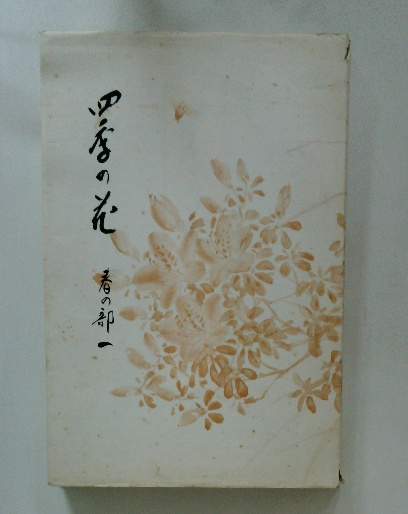 四季の花
春の部一